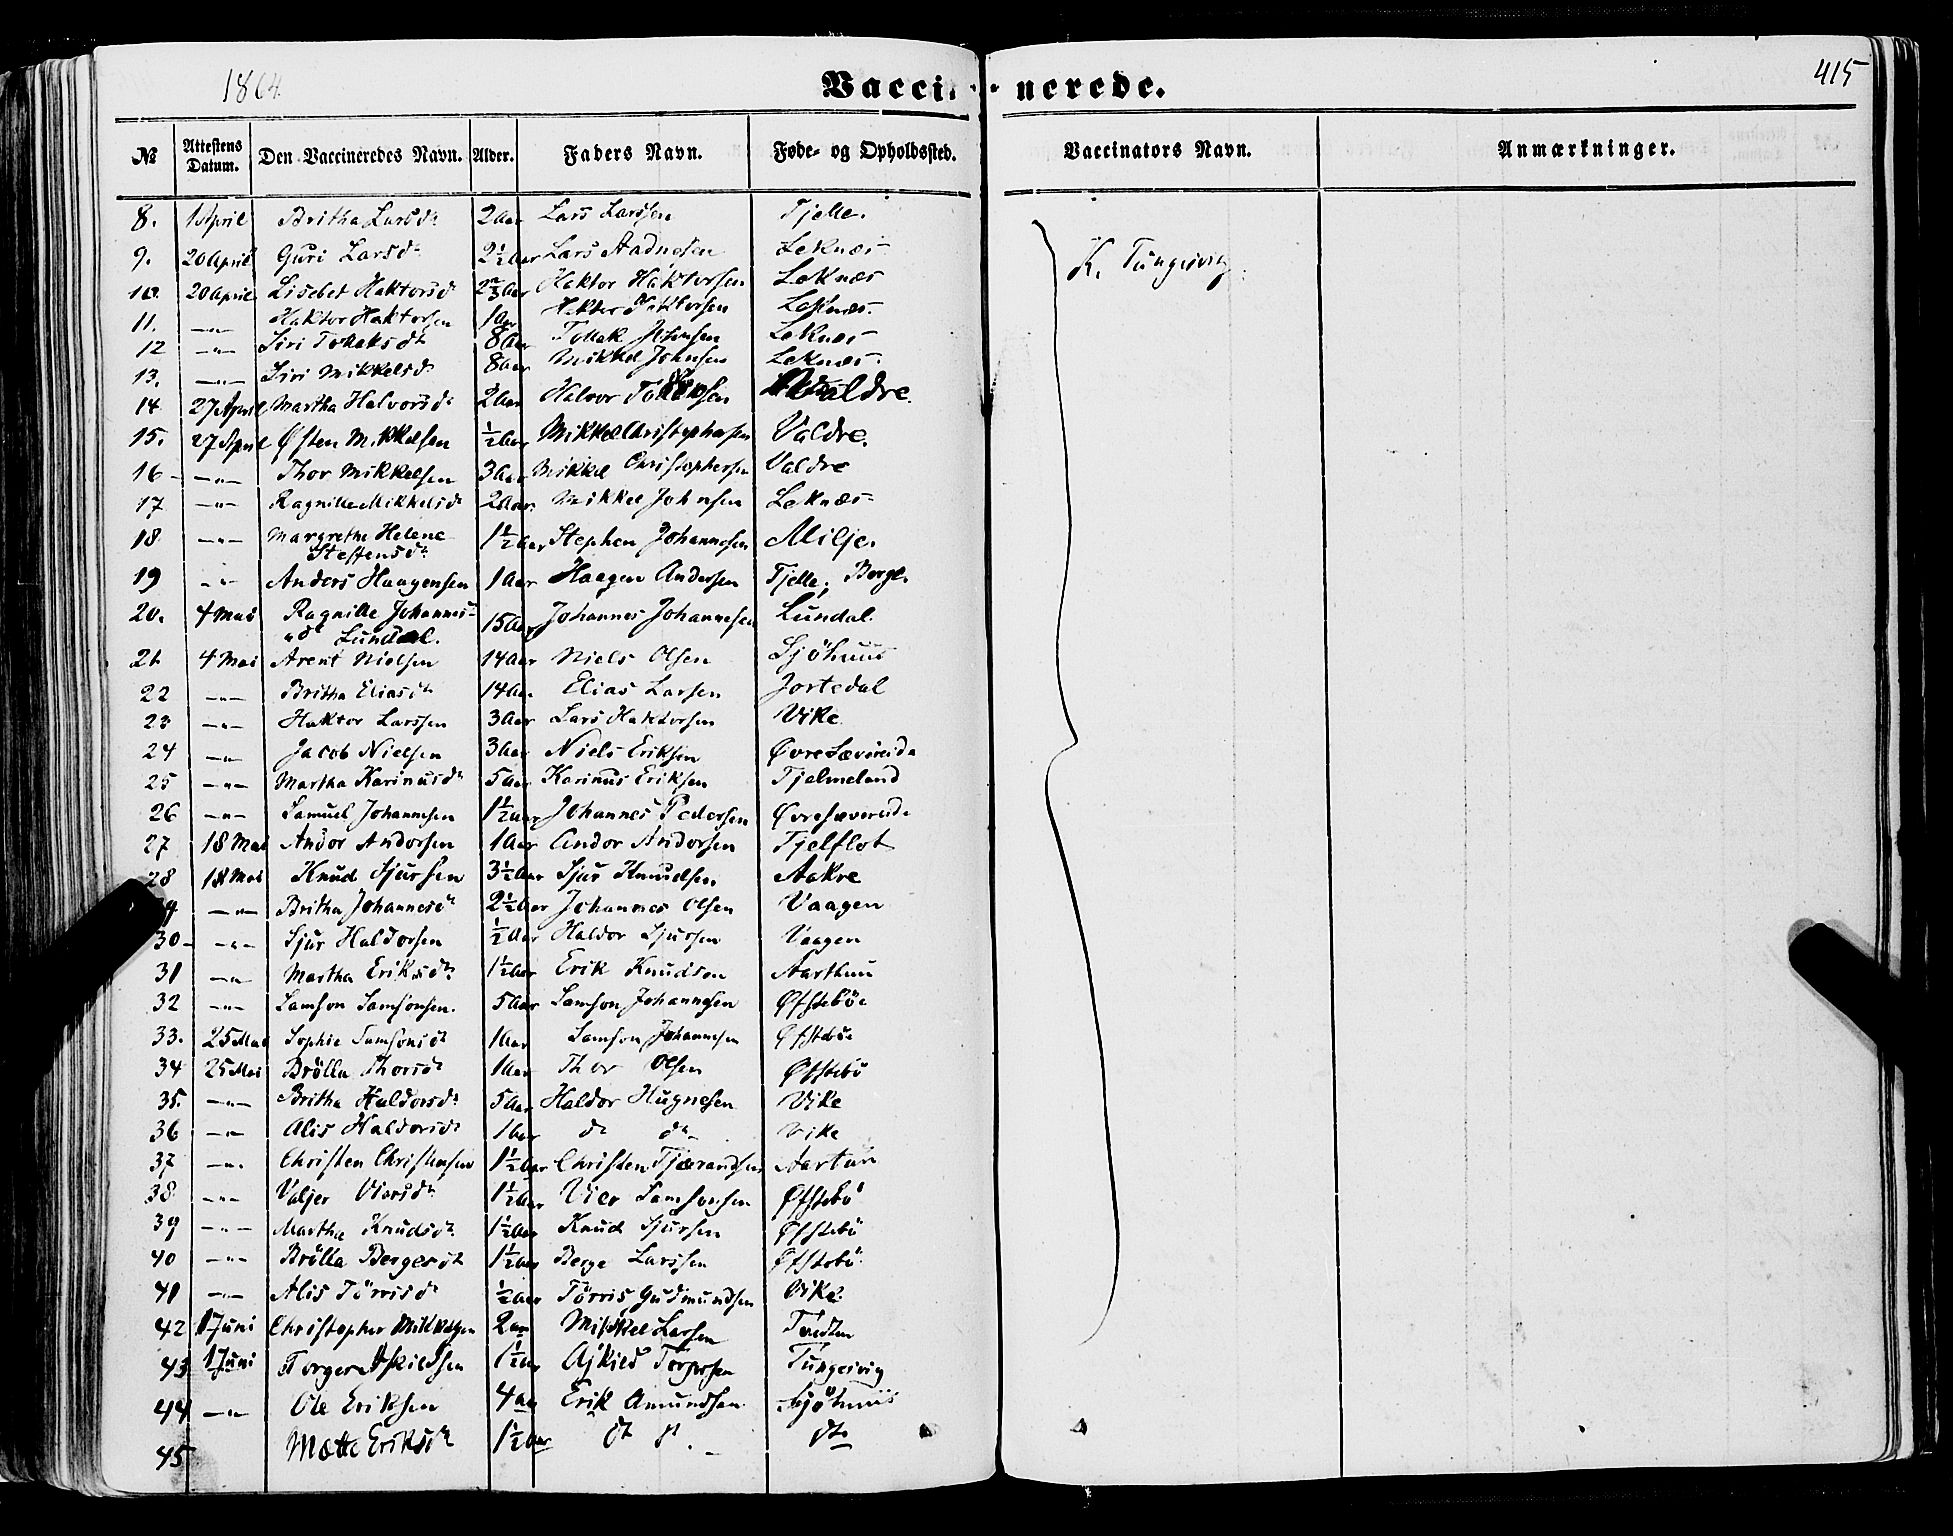 1864
Vaccinerede.
415
№ Attestens Datum. Den Vaccineredes Navn. Alder. Faders Navn. Føde- og Opholdssted. Vaccinators Navn. Anmærkninger.
8. 1 April Britha Larsdr 2 Aar Lars Larssen Tjelle.
9. 20 April Guri Larsdr 2½ Aar Lars Aadnesen Leknæs
10. 20 April Lisebet Haktorsd 2⅔ Aar Haktor Haktorsen Leknæs
11. —"— Haktor Haktorsen 1 Aar Haktor Haktorsen Leknæs.
12 —"— Siri Tollaksdr 8 Aar Tollak Johnsen Leknæs
13. —"— Siri Mikkelsd 8 Aar Mikkel Johnsen Leknæs.
14 27 April Martha Halvorsdr 2 Aar Halvor Valdre.
15. 27 April Østen Mikkelsen ½ Aar Mikkel Christophersen Valdre.
16 —"— Thor Mikkelsen 3 Aar Mikkel Christophersen Valdre
17 —"— Ragnille Mikkelsdr 2 Aar Mikkel Johnsen Leknæs
18 —"— Margrethe Helene Steffensdr 1½ Aar Stephen Johannesen Milje.
19 —"— Anders Haagensen 1 Aar Haagen Andersen Tjelle, Bergl.
20. 4 Mai Ragnille Johannesdr Lundal. 15 Aar Johannes Johannesen Lundal.
21 4 Mai Arent Nielsen 14 Aar Niels Olsen Sjöhuus
22 —"— Britha Eliasdr 14 Aar Elias Larsen Jortedal
23 —"— Haktor Larssen 3 Aar Lars Haktorsen Vike
24 —"— Jacob Nielsen 3 Aar Niels Eriksen Øvre Sævereide
25 —"— Martha Karinusdr 5 Aar Karinus Eriksen Tjelmeland
26 —"— Samuel Johannesen 1½ Aar Johannes Pedersen Øvresævereide
27 18 Mai Andor Andorsen 1 Aar Andor Andorsen Tjelflot
28 18 Mai Knud Sjursen 3½ Aar Sjur Knudsen Aakre
—"— Britha Johannesdr 2½ Aar Johannes Olsen Vaagen
30 —"— Sjur Haldorsen ½ Aar Haldor Sjursen Vaagen
31 —"— Martha Eriksdr 1½ Aar Erik Knudsen Aarthun
32 —"— Samson Samsonsen. 5 Aar Samson Johannesen Øfsteböe
33. 25 Mai Sophie Samsonsdr 1 Aar Samson Johannesen Øfsteböe
34 25 Mai Brölla Thorsdr 1 Aar Thor Olsen Øfstebö
35. —"— Britha Haldorsdr 5 Aar Haldor Hugnesen Vike
36 —"— Alis Haldorsdr 1 Aar do do Vike
37 —"— Christen Christensen 1½ Aar Christen Tjærandsen Aartun
38 —"— Valjer Viersdr 1½ Aar Vier Samsonsen Øfstebö
39 —"— Martha Knudsdr 1½ Aar Knud Sjursen Øfstebö
40 —"— Brölla Bergesdr 1½ Aar Berge Larssen Øfstebö
41 —"— Alis Törrisdr ½ Aar Törris Gudmundsen Vike
42 1 Juni Christopher Mikkelsen 2 Aar Mikkel Larsen
43 1 Juni Torger Askildsen 1½ Aar Askild Torgersen Tungesvig
44 —"— Ole Eriksen 4 Aar Erik Amundsen Sjöhuus
45 Mætte Eriksdr 1½ Aar do do do
K. Tungesvig